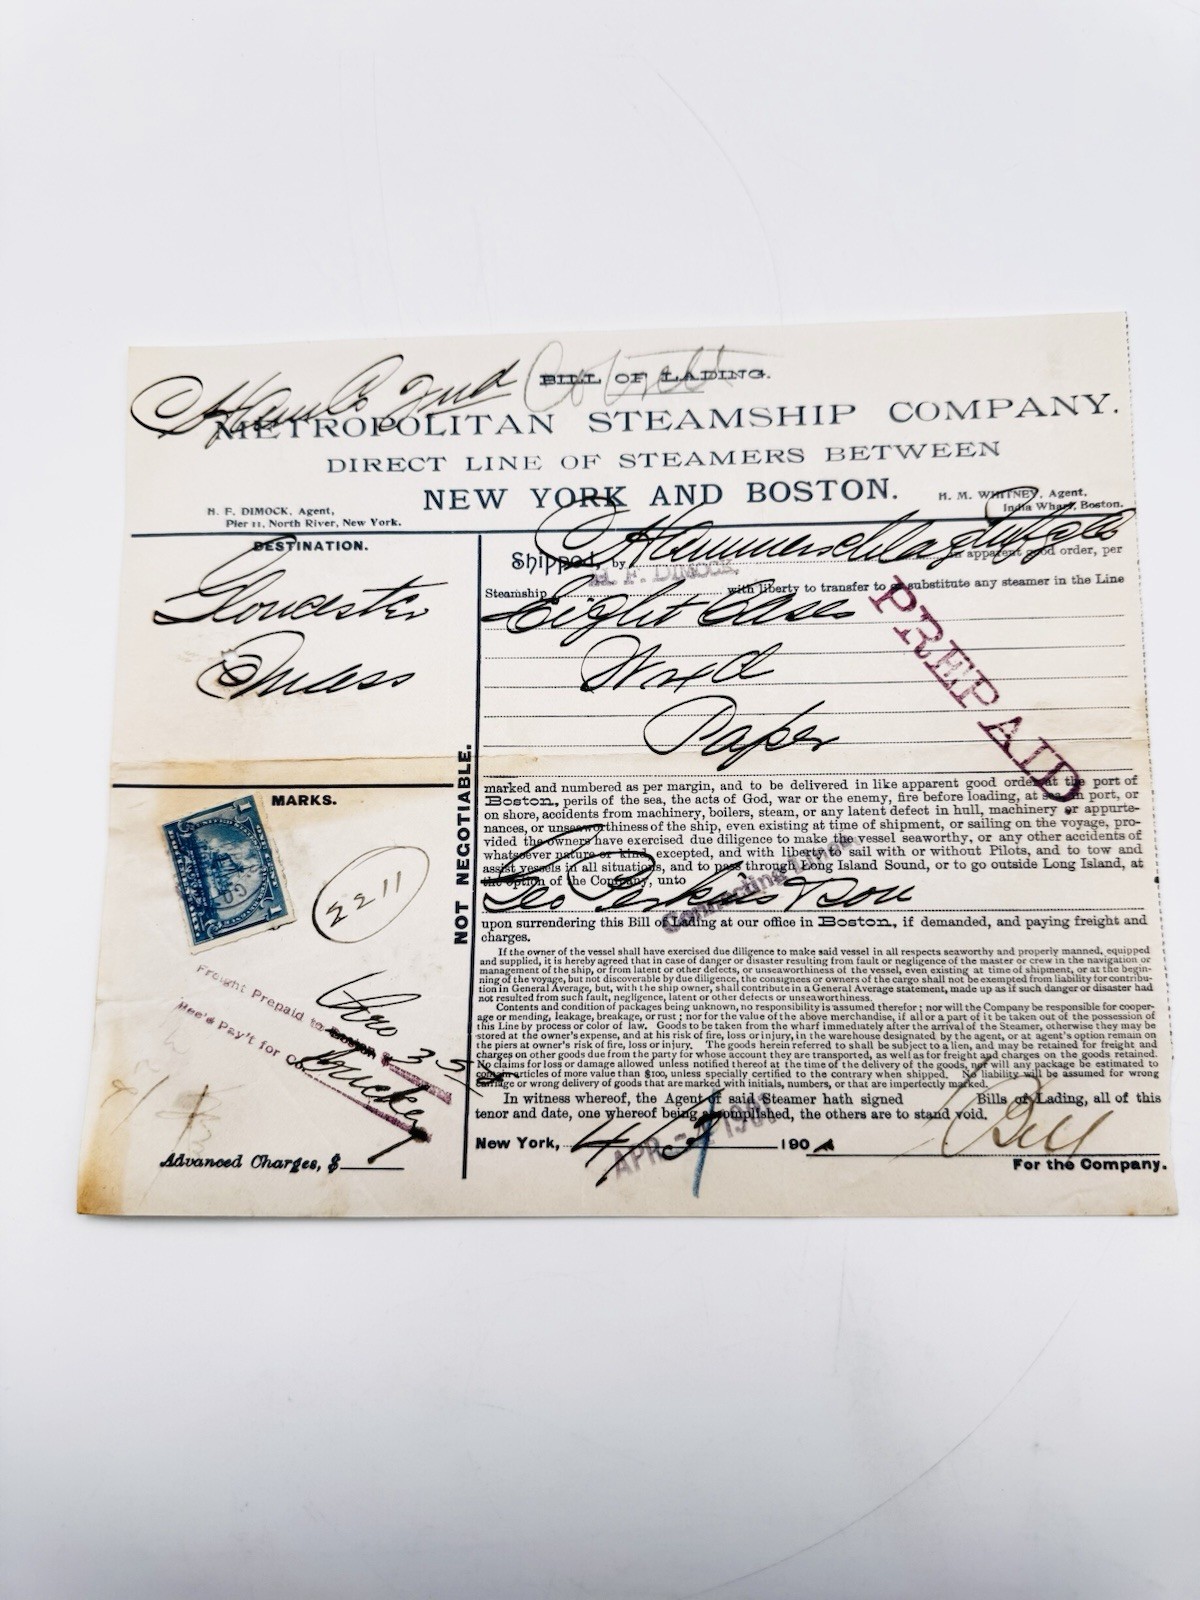 BILL OF LADING.
METROPOLITAN STEAMSHIP COMPANY.
DIRECT LINE OF STEAMERS BETWEEN
NEW YORK AND BOSTON.
H. F. DIMOCK, Agent,
Pier 11, North River, New York.
H. M. WHITNEY, Agent,
India Wharf, Boston.
DESTINATION.
Gloucester
Mass
Shipped, by Hammerschlag Mfg Co in apparent good order, per
Steamship H. F. DIMOCK, with liberty to transfer to or substitute any steamer in the Line
Eight Cases
Wxd
Paper
PREPAID
NOT NEGOTIABLE.
marked and numbered as per margin, and to be delivered in like apparent good order at the port of
Boston, perils of the sea, the acts of God, war or the enemy, fire before loading, at sea, in port, or
on shore, accidents from machinery, boilers, steam, or any latent defect in hull, machinery or appurte-
nances, or unseaworthiness of the ship, even existing at time of shipment, or sailing on the voyage, pro-
vided the owners have exercised due diligence to make the vessel seaworthy, or any other accidents of
whatsoever nature or kind, excepted, and with liberty to sail with or without Pilots, and to tow and
assist vessels in all situations, and to pass through Long Island Sound, or to go outside Long Island, at
the option of the Company, unto
Geo Perkins & Son
Connecting Lines.
upon surrendering this Bill of Lading at our office in Boston, if demanded, and paying freight and
charges.
If the owner of the vessel shall have exercised due diligence to make said vessel in all respects seaworthy and properly manned, equipped
and supplied, it is hereby agreed that in case of danger or disaster resulting from fault or negligence of the master or crew in the navigation or
management of the ship, or from latent or other defects, or unseaworthiness of the vessel, even existing at time of shipment, or at the begin-
ning of the voyage, but not discoverable by due diligence, the consignees or owners of the cargo shall not be exempted from liability for contribu-
tion in General Average, but, with the ship owner, shall contribute in a General Average statement, made up as if such danger or disaster had
not resulted from such fault, negligence, latent or other defects or unseaworthiness.
Contents and condition of packages being unknown, no responsibility is assumed therefor; nor will the Company be responsible for cooper-
age or mending, leakage, breakage, or rust; nor for the value of the above merchandise, if all or a part of it be taken out of the possession of
this Line by process or color of law. Goods to be taken from the wharf immediately after the arrival of the Steamer, otherwise they may be
stored at the owner's expense, and at his risk of fire, loss or injury, in the warehouse designated by the agent, or at agent's option remain on
the piers at owner's risk of fire, loss or injury. The goods herein referred to shall be subject to a lien, and may be retained for freight and
charges on other goods due from the party for whose account they are transported, as well as for freight and charges on the goods retained.
No claims for loss or damage allowed unless notified thereof at the time of the delivery of the goods, nor will any package be estimated to
contain articles of more value than $100, unless specially certified to the contrary when shipped. No liability will be assumed for wrong
carriage or wrong delivery of goods that are marked with initials, numbers, or that are imperfectly marked.
In witness whereof, the Agent of said Steamer hath signed Bills of Lading, all of this
tenor and date, one whereof being accomplished, the others are to stand void.
New York, 4/3 190
APR -4 1901
Bell
For the Company.
MARKS.
1 1
2211
Freight Prepaid to Boston
Rec'd Pay't for Co.
Advanced Charges, $